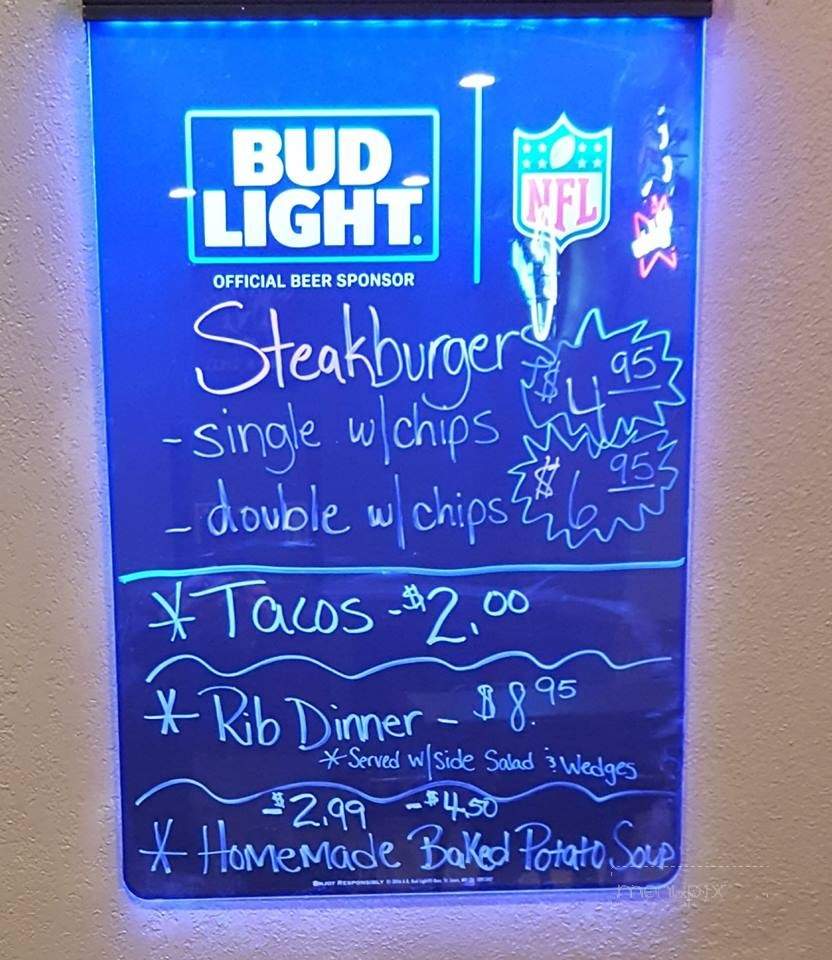 BUD
LIGHT.
NFL
OFFICIAL BEER SPONSOR
Steakburger
$4 95
- single w/chips
$6 95
- double w/chips
* Tacos - $2.00
* Rib Dinner - $8.95
* Served w/Side Salad & Wedges
- $2.99 - $4.50
* Homemade Baked Potato Soup
ENJOY RESPONSIBLY
menupix